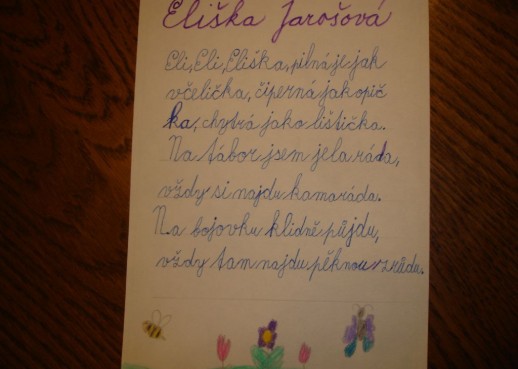 Eliška Jarošová
Eli, Eli, Eliška, pilná je jak
včelička, čiperná jak opič
ka, chytrá jako lištička.
Na tábor jsem jela ráda,
vždy si najdu kamaráda.
Na bojovku klidně půjdu,
vždy tam najdu pěknou vzrůdu.